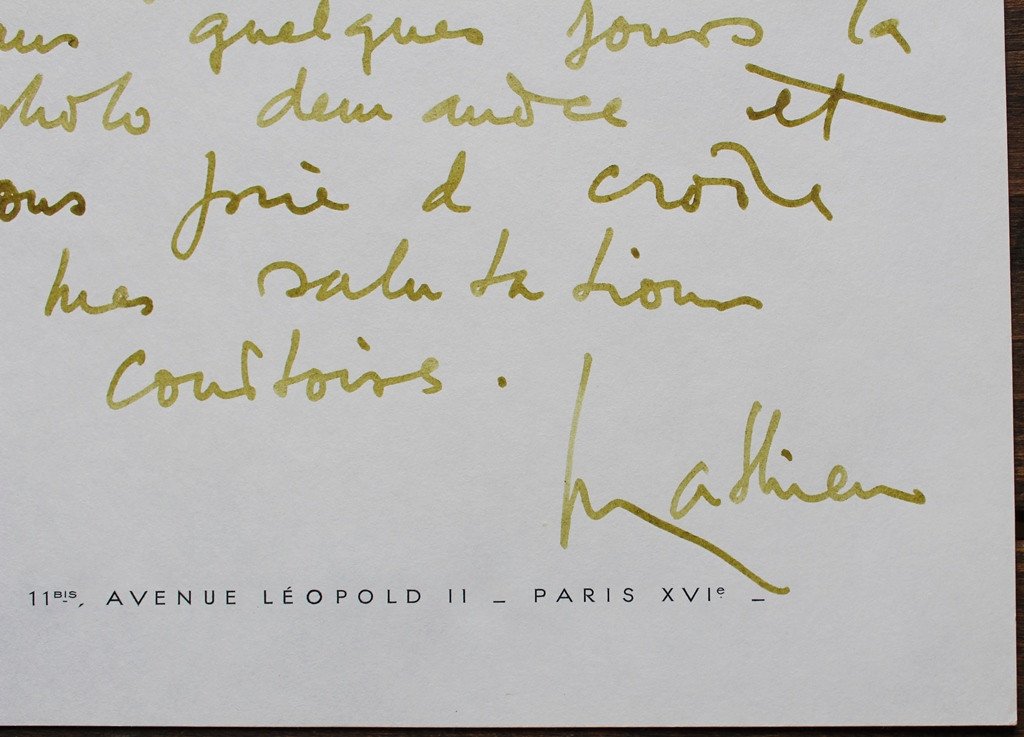 ans quelques jours la
photo demandée et
ous prie d croire
mes salutations
courtoises.
Mathieu
11BIS, AVENUE LÉOPOLD II _ PARIS XVIe _